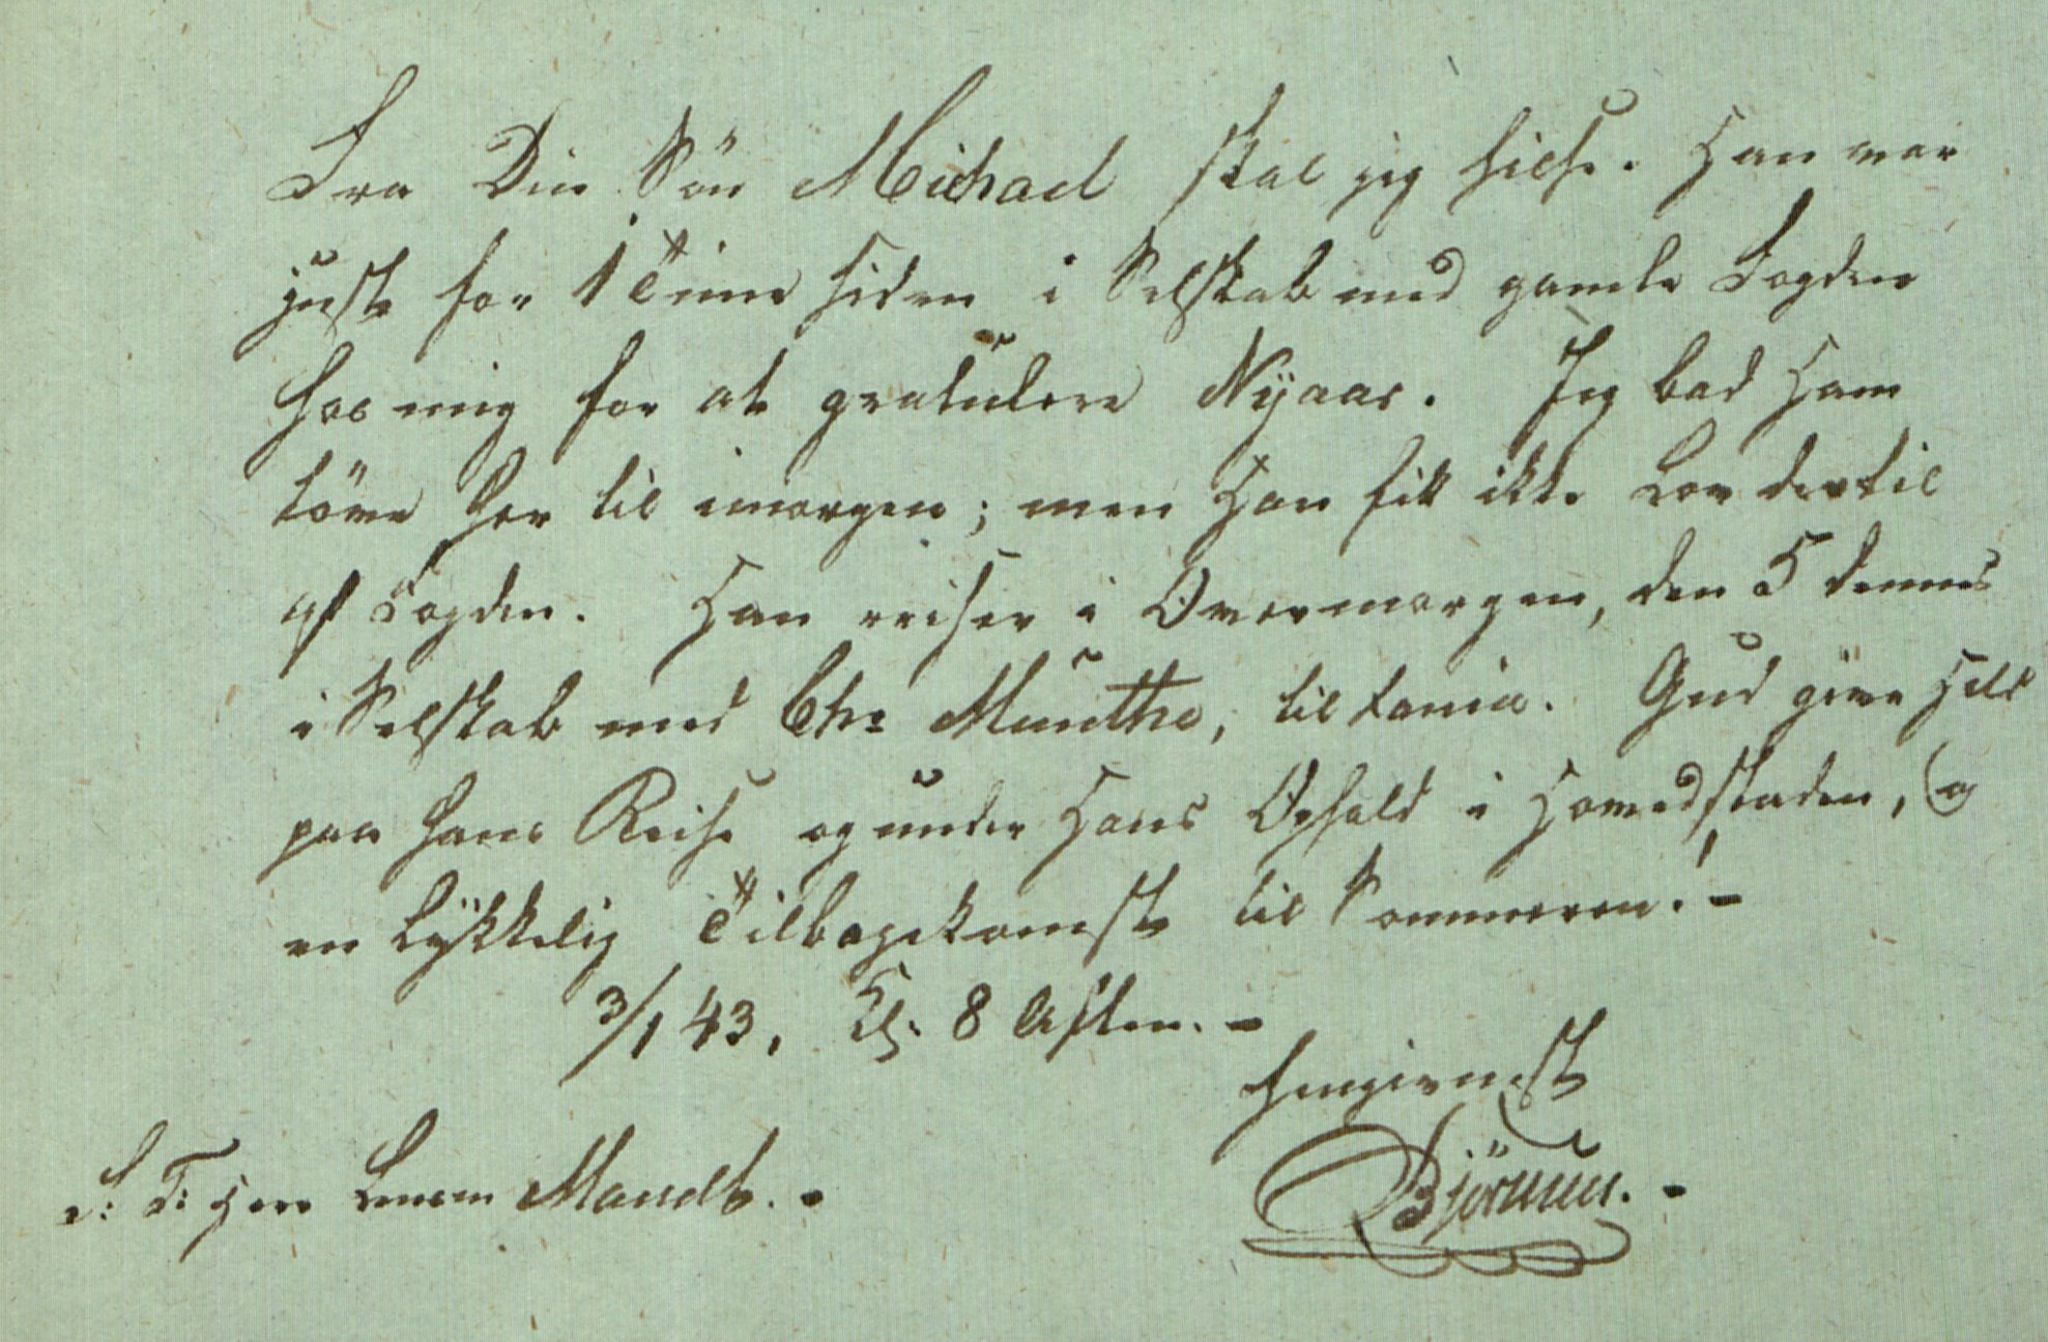 Fra Din Sön Michael skal jeg hilse. Han var
juste for 1 Time siden i Selskab med gamle Fogden
hos mig for at gratulere Nÿaar. Jeg bad Ham
töve her til imorgen; men Han fik ikke Lov dertil
af Fogden. Han reiser i Overmorgen, den 5 dennes
i Selskab med Chr Munthe, til tania. Gud give Held
paa hans Reise og under Hans Ophold i Hovedstaden, og
en lÿkkelig Tilbagekomst til Sommeren! -
3/1 43, Kl. 8 Aften. -
hengivenst
S: T: Herr Mandt. -
Björnson. -